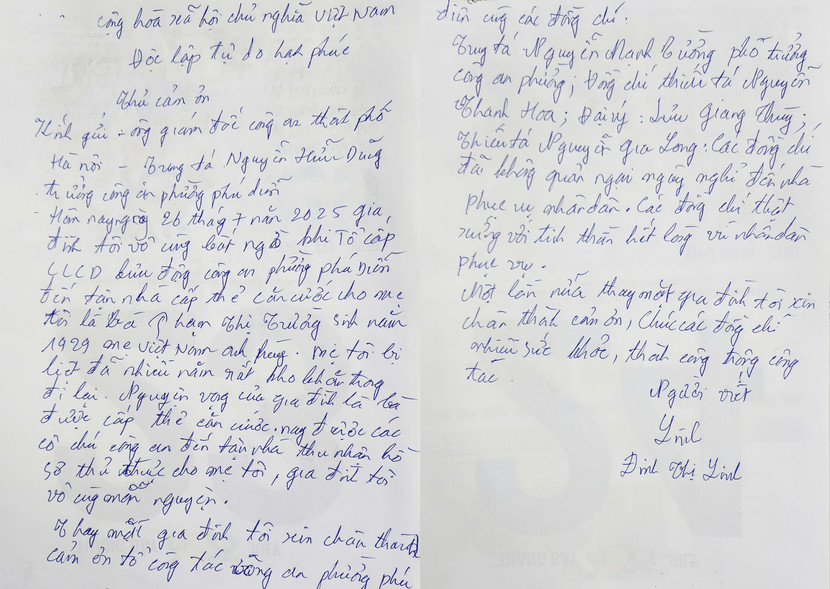 cộng hòa xã hội chủ nghĩa Việt Nam
Độc lập tự do hạh phúc
Thư cảm ơn
Kính gửi - ông giám đốc công an thàh phố
Hà nội - Trung tá Nguyễn Hữu Dũng
trưởng công an phường phú diễn
- Hôm nay ngày 26 thág 7 năm 2025 gia,
đình tôi vô cùng bất ngờ khi Tổ cấp
CCCD lưu động công an phường phú Diễn
đến tận nhà cấp thẻ căn cước cho mẹ
tôi là bà Phạm Thị Trưởng sinh năm
1929 mẹ Việt Nam anh hùng. mẹ tôi bị
liệt đã nhiều năm rất kho khăn trong
đi lại. Nguyện vọng của gia đình là bà
được cấp thẻ căn cước. nay được các
cô chú công an đến tận nhà thu nhận hồ
sơ thủ thục cho mẹ tôi, gia đình tôi
vô cùng mãn nguyện.
Thay mặt gia đình tôi xin chân thành
cảm ơn tổ công tác công an phường phú
diễn cùng các đồng chí.
Trung tá Nguyễn Mạnh Cường phó trưởng
công an phường; Đồng chí thiếu tá Nguyễn
Thanh Hoa; Đại úy: Lưu Giang Thùy;
Thiếu tá Nguyễn gia Long. Các đồng chí
đã không quản ngại ngày nghỉ đến nhà
phục vụ nhân dân. Các đồng chí thật
xứng với tinh thần hết lòng vì nhân dân
phục vụ.
Một lần nữa thay mặt gia đình tôi xin
chân thành cảm ơn, Chúc các đồng chí
nhiều sức khỏe, thành công trong công
tác.
Người viết
Lình
Đinh Thị Lình